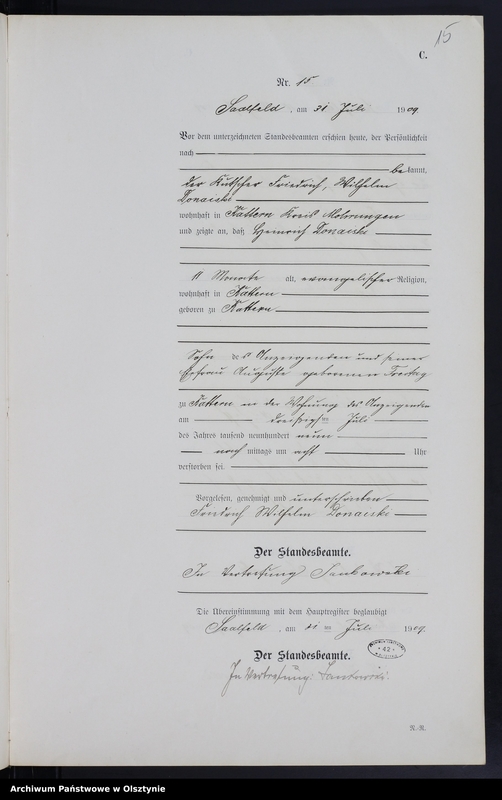 15
C.
Nr. 15
Saalfeld, am 31 Juli 1909.
Vor dem unterzeichneten Standesbeamten erschien heute, der Persönlichkeit
nach
bekannt,
der Kutscher Friedrich, Wilhelm
Donarski
wohnhaft in Kattern Kreis Mohrungen
und zeigte an, daß Heinrich Donarski
11 Monate alt, evangelischer Religion,
wohnhaft in Kattern
geboren zu Kattern
Sohn des Anzeigenden und seiner
Ehefrau Auguste geborenen Freitag
zu Kattern in der Wohnung des Anzeigenden
am dreißigsten Juli
des Jahres tausend neunhundert neun
nachmittags um acht Uhr
verstorben sei.
Vorgelesen, genehmigt und unterschrieben
Friedrich Wilhelm Donarski
Der Standesbeamte.
In Vertretung
Die Übereinstimmung mit dem Hauptregister beglaubigt
Saalfeld, am 31 ten Juli 1909.
Der Standesbeamte.
In Vertretung:
* 42 *
N.-N.
Archiwum Państwowe w Olsztynie